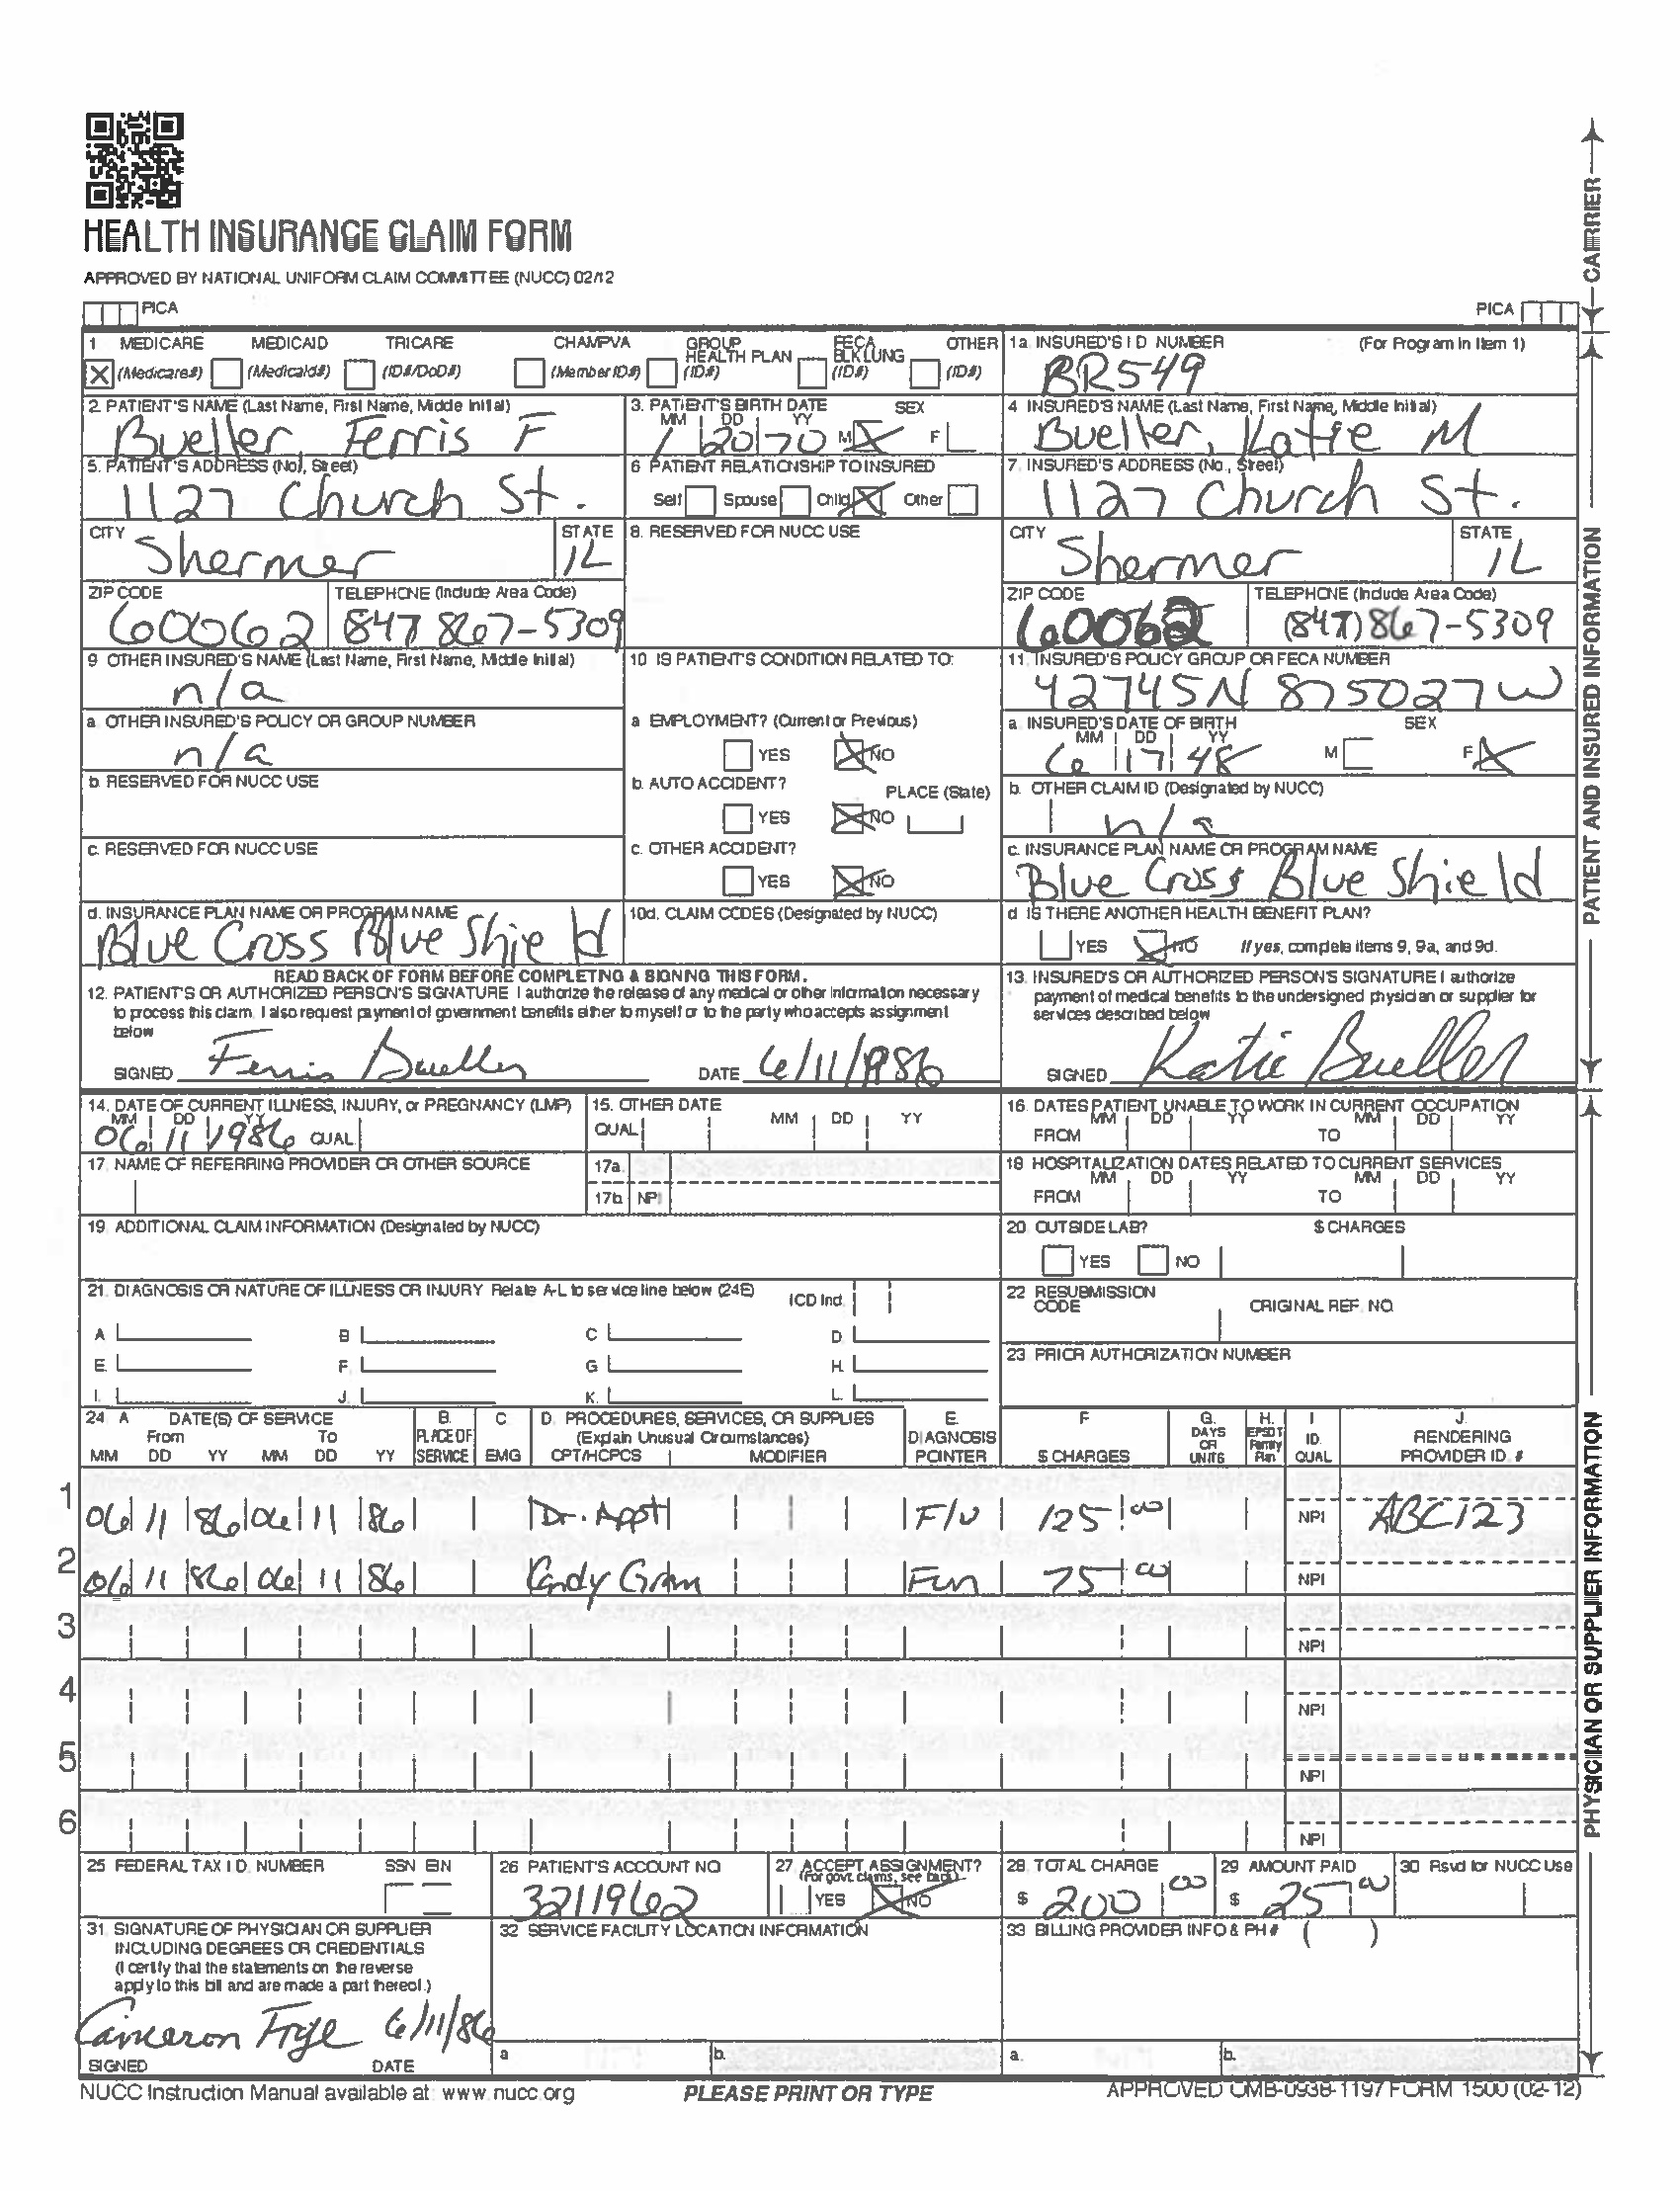 HEALTH INSURANCE CLAIM FORM
APPROVED BY NATIONAL UNIFORM CLAIM COMMITTEE (NUCC) 02/12
PICA
PICA
CARRIER
1 MEDICARE MEDICAID TRICARE CHAMPVA GROUP HEALTH PLAN FECA BLK LUNG OTHER
X (Medicare#) (Medicaid#) (ID#/DoD#) (Member ID#) (ID#) (ID#) (ID#)
1a. INSURED'S I D NUMBER (For Program in Item 1)
BR549
2. PATIENT'S NAME (Last Name, First Name, Middle Initial)
Bueller, Ferris F
3. PATIENT'S BIRTH DATE SEX
MM DD YY
1 20 70 M X F
4 INSURED'S NAME (Last Name, First Name, Middle Initial)
Bueller, Katie M
5. PATIENT'S ADDRESS (No), Street)
1127 Church St.
6 PATIENT RELATIONSHIP TO INSURED
Self Spouse Child X Other
7. INSURED'S ADDRESS (No., Street)
1127 Church St.
CITY STATE
Shermer IL
8. RESERVED FOR NUCC USE
CITY STATE
Shermer IL
ZIP CODE TELEPHONE (Include Area Code)
60062 847 867-5309
ZIP CODE TELEPHONE (Include Area Code)
60062 (847) 867-5309
9 OTHER INSURED'S NAME (Last Name, First Name, Middle Initial)
n/a
10 IS PATIENT'S CONDITION RELATED TO:
11. INSURED'S POLICY GROUP OR FECA NUMBER
42745N 875027W
a. OTHER INSURED'S POLICY OR GROUP NUMBER
n/a
a EMPLOYMENT? (Current or Previous)
YES X NO
a. INSURED'S DATE OF BIRTH SEX
MM DD YY
6 17 48 M F X
b. RESERVED FOR NUCC USE
b. AUTO ACCIDENT? PLACE (State)
YES X NO
b. OTHER CLAIM ID (Designated by NUCC)
n/a
c. RESERVED FOR NUCC USE
c. OTHER ACCIDENT?
YES X NO
c. INSURANCE PLAN NAME OR PROGRAM NAME
Blue Cross Blue Shield
d. INSURANCE PLAN NAME OR PROGRAM NAME
Blue Cross Blue Shield
10d. CLAIM CODES (Designated by NUCC)
d IS THERE ANOTHER HEALTH BENEFIT PLAN?
YES X NO If yes, complete items 9, 9a, and 9d.
READ BACK OF FORM BEFORE COMPLETING & SIGNING THIS FORM.
12. PATIENT'S OR AUTHORIZED PERSON'S SIGNATURE I authorize the release of any medical or other information necessary
to process this claim. I also request payment of government benefits either to myself or to the party who accepts assignment
below
SIGNED Ferris Bueller DATE 6/11/1986
13. INSURED'S OR AUTHORIZED PERSON'S SIGNATURE I authorize
payment of medical benefits to the undersigned physician or supplier for
services described below
SIGNED Katie Bueller
PATIENT AND INSURED INFORMATION
14. DATE OF CURRENT ILLNESS, INJURY, or PREGNANCY (LMP)
MM DD YY
06 11 1986 QUAL
15. OTHER DATE
QUAL MM DD YY
16. DATES PATIENT UNABLE TO WORK IN CURRENT OCCUPATION
MM DD YY MM DD YY
FROM TO
17. NAME OF REFERRING PROVIDER OR OTHER SOURCE
17a.
17b. NPI
18 HOSPITALIZATION DATES RELATED TO CURRENT SERVICES
MM DD YY MM DD YY
FROM TO
19. ADDITIONAL CLAIM INFORMATION (Designated by NUCC)
20. OUTSIDE LAB? $ CHARGES
YES NO
21. DIAGNOSIS OR NATURE OF ILLNESS OR INJURY Relate A-L to service line below (24E) ICD Ind.
A B C D.
E. F. G H.
I. J. K. L.
22 RESUBMISSION
CODE ORIGINAL REF. NO.
23 PRIOR AUTHORIZATION NUMBER
24. A DATE(S) OF SERVICE B. C. D. PROCEDURES, SERVICES, OR SUPPLIES E. F G. H. I J.
From To PLACE OF (Explain Unusual Circumstances) DIAGNOSIS DAYS OR UNITS EPSDT Family Plan ID. RENDERING
MM DD YY MM DD YY SERVICE EMG CPT/HCPCS MODIFIER POINTER $ CHARGES QUAL PROVIDER ID. #
1 06 11 86 06 11 86 Dr. Appt F/U 125 00 NPI ABC123
2 06 11 86 06 11 86 Candy Gram Fun 75 00 NPI
3 NPI
4 NPI
5 NPI
6 NPI
25 FEDERAL TAX I D. NUMBER SSN EIN
26 PATIENT'S ACCOUNT NO
3211962
27. ACCEPT ASSIGNMENT?
(For govt. claims, see back)
YES X NO
28. TOTAL CHARGE
$ 200 00
29 AMOUNT PAID
$ 25 00
30 Rsvd for NUCC Use
31. SIGNATURE OF PHYSICIAN OR SUPPLIER
INCLUDING DEGREES OR CREDENTIALS
(I certify that the statements on the reverse
apply to this bill and are made a part thereof.)
Cameron Frye 6/11/86
SIGNED DATE
32 SERVICE FACILITY LOCATION INFORMATION
a b.
33 BILLING PROVIDER INFO & PH # ( )
a. b.
PHYSICIAN OR SUPPLIER INFORMATION
NUCC Instruction Manual available at www.nucc.org
PLEASE PRINT OR TYPE
APPROVED OMB-0938-1197 FORM 1500 (02-12)